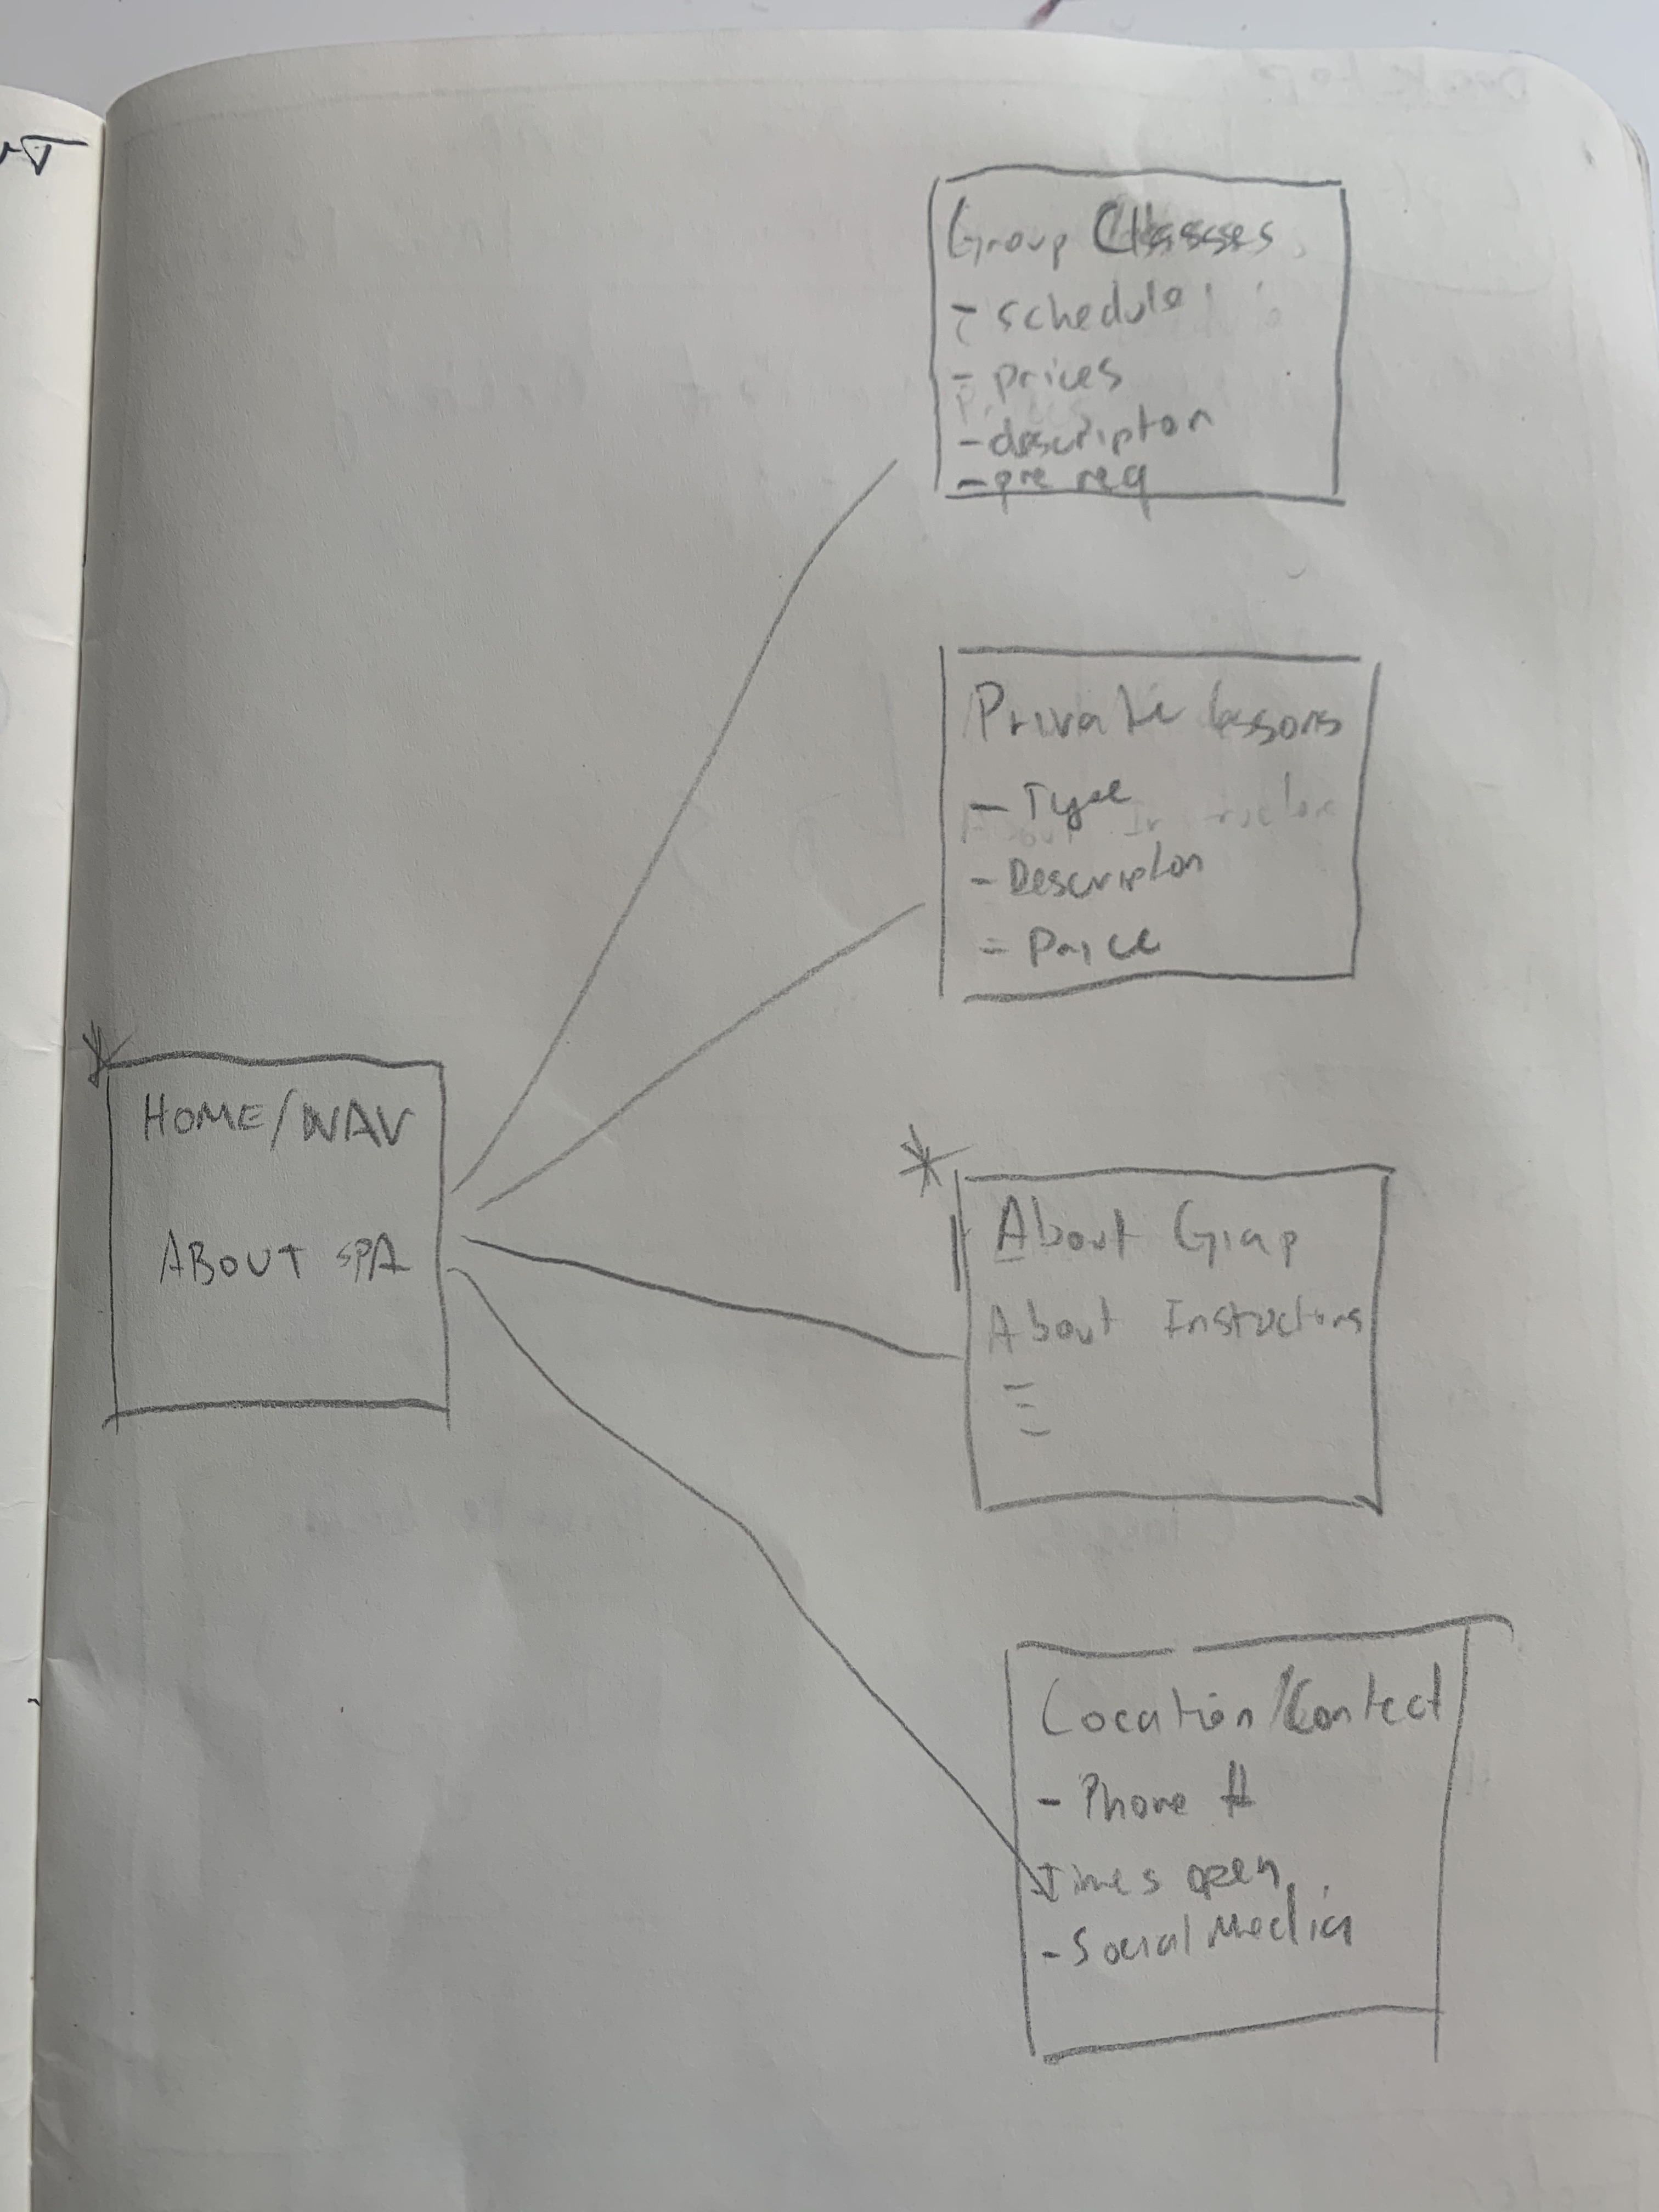 HOME/NAV
ABOUT SPA
Group Classes
- schedule
- prices
- description
- pre req
Private lessons
- Type
- Description
- Price
About Giap
About Instructors
Location/Contact
- Phone #
Times open
- Social Media